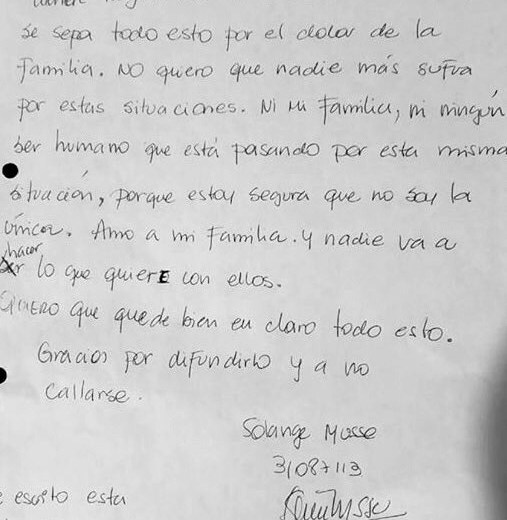 se sepa todo esto por el dolor de la
familia. NO quiero que nadie más sufra
por estas situaciones. Ni mi familia, ni ningún
ser humano que está pasando por esta misma
situación, porque estoy segura que no soy la
única. Amo a mi familia. y nadie va a
hacer
lo que quierE con ellos.
QUIERO que quede bien en claro todo esto.
Gracias por difundirlo y a no
callarse.
Solange Musse
31087113
escrito esta